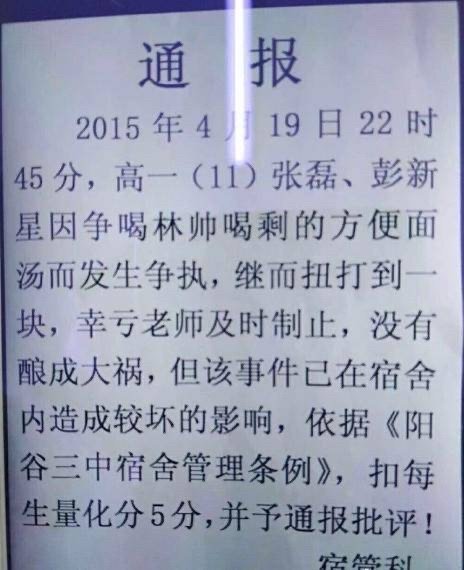 通 报
2015 年 4 月 19 日 22 时
45 分，高一（11）张磊、彭新
星因争喝林帅喝剩的方便面
汤而发生争执，继而扭打到一
块，幸亏老师及时制止，没有
酿成大祸，但该事件已在宿舍
内造成较坏的影响，依据《阳
谷三中宿舍管理条例》，扣每
生量化分 5 分，并予通报批评！
宿管科